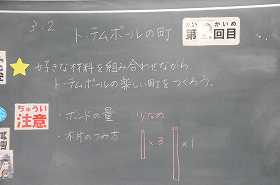 3.2
トーテムポールの町
第 回目
かいめ
好きな材料を組み合わせながら、
トーテムポールの楽しい町をつくろう。
ちゅうい
注意
・ボンドの量 少なめ
・木片のつみ方
×3
×1